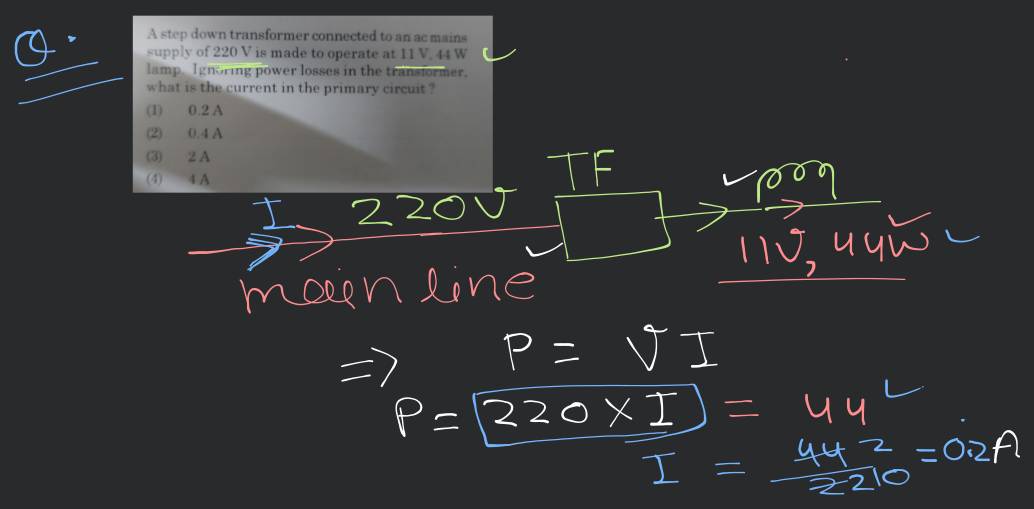 Q.
A step down transformer connected to an ac mains
supply of 220 V is made to operate at 11 V, 44 W
lamp. Ignoring power losses in the transformer,
what is the current in the primary circuit ?
(1) 0.2 A
(2) 0.4 A
(3) 2 A
(4) 4 A
TF
I 220V
11V, 44W
main line
⇒ P = VI
P = 220 × I = 44
I = 44 2 / 220 10 = 0.2A